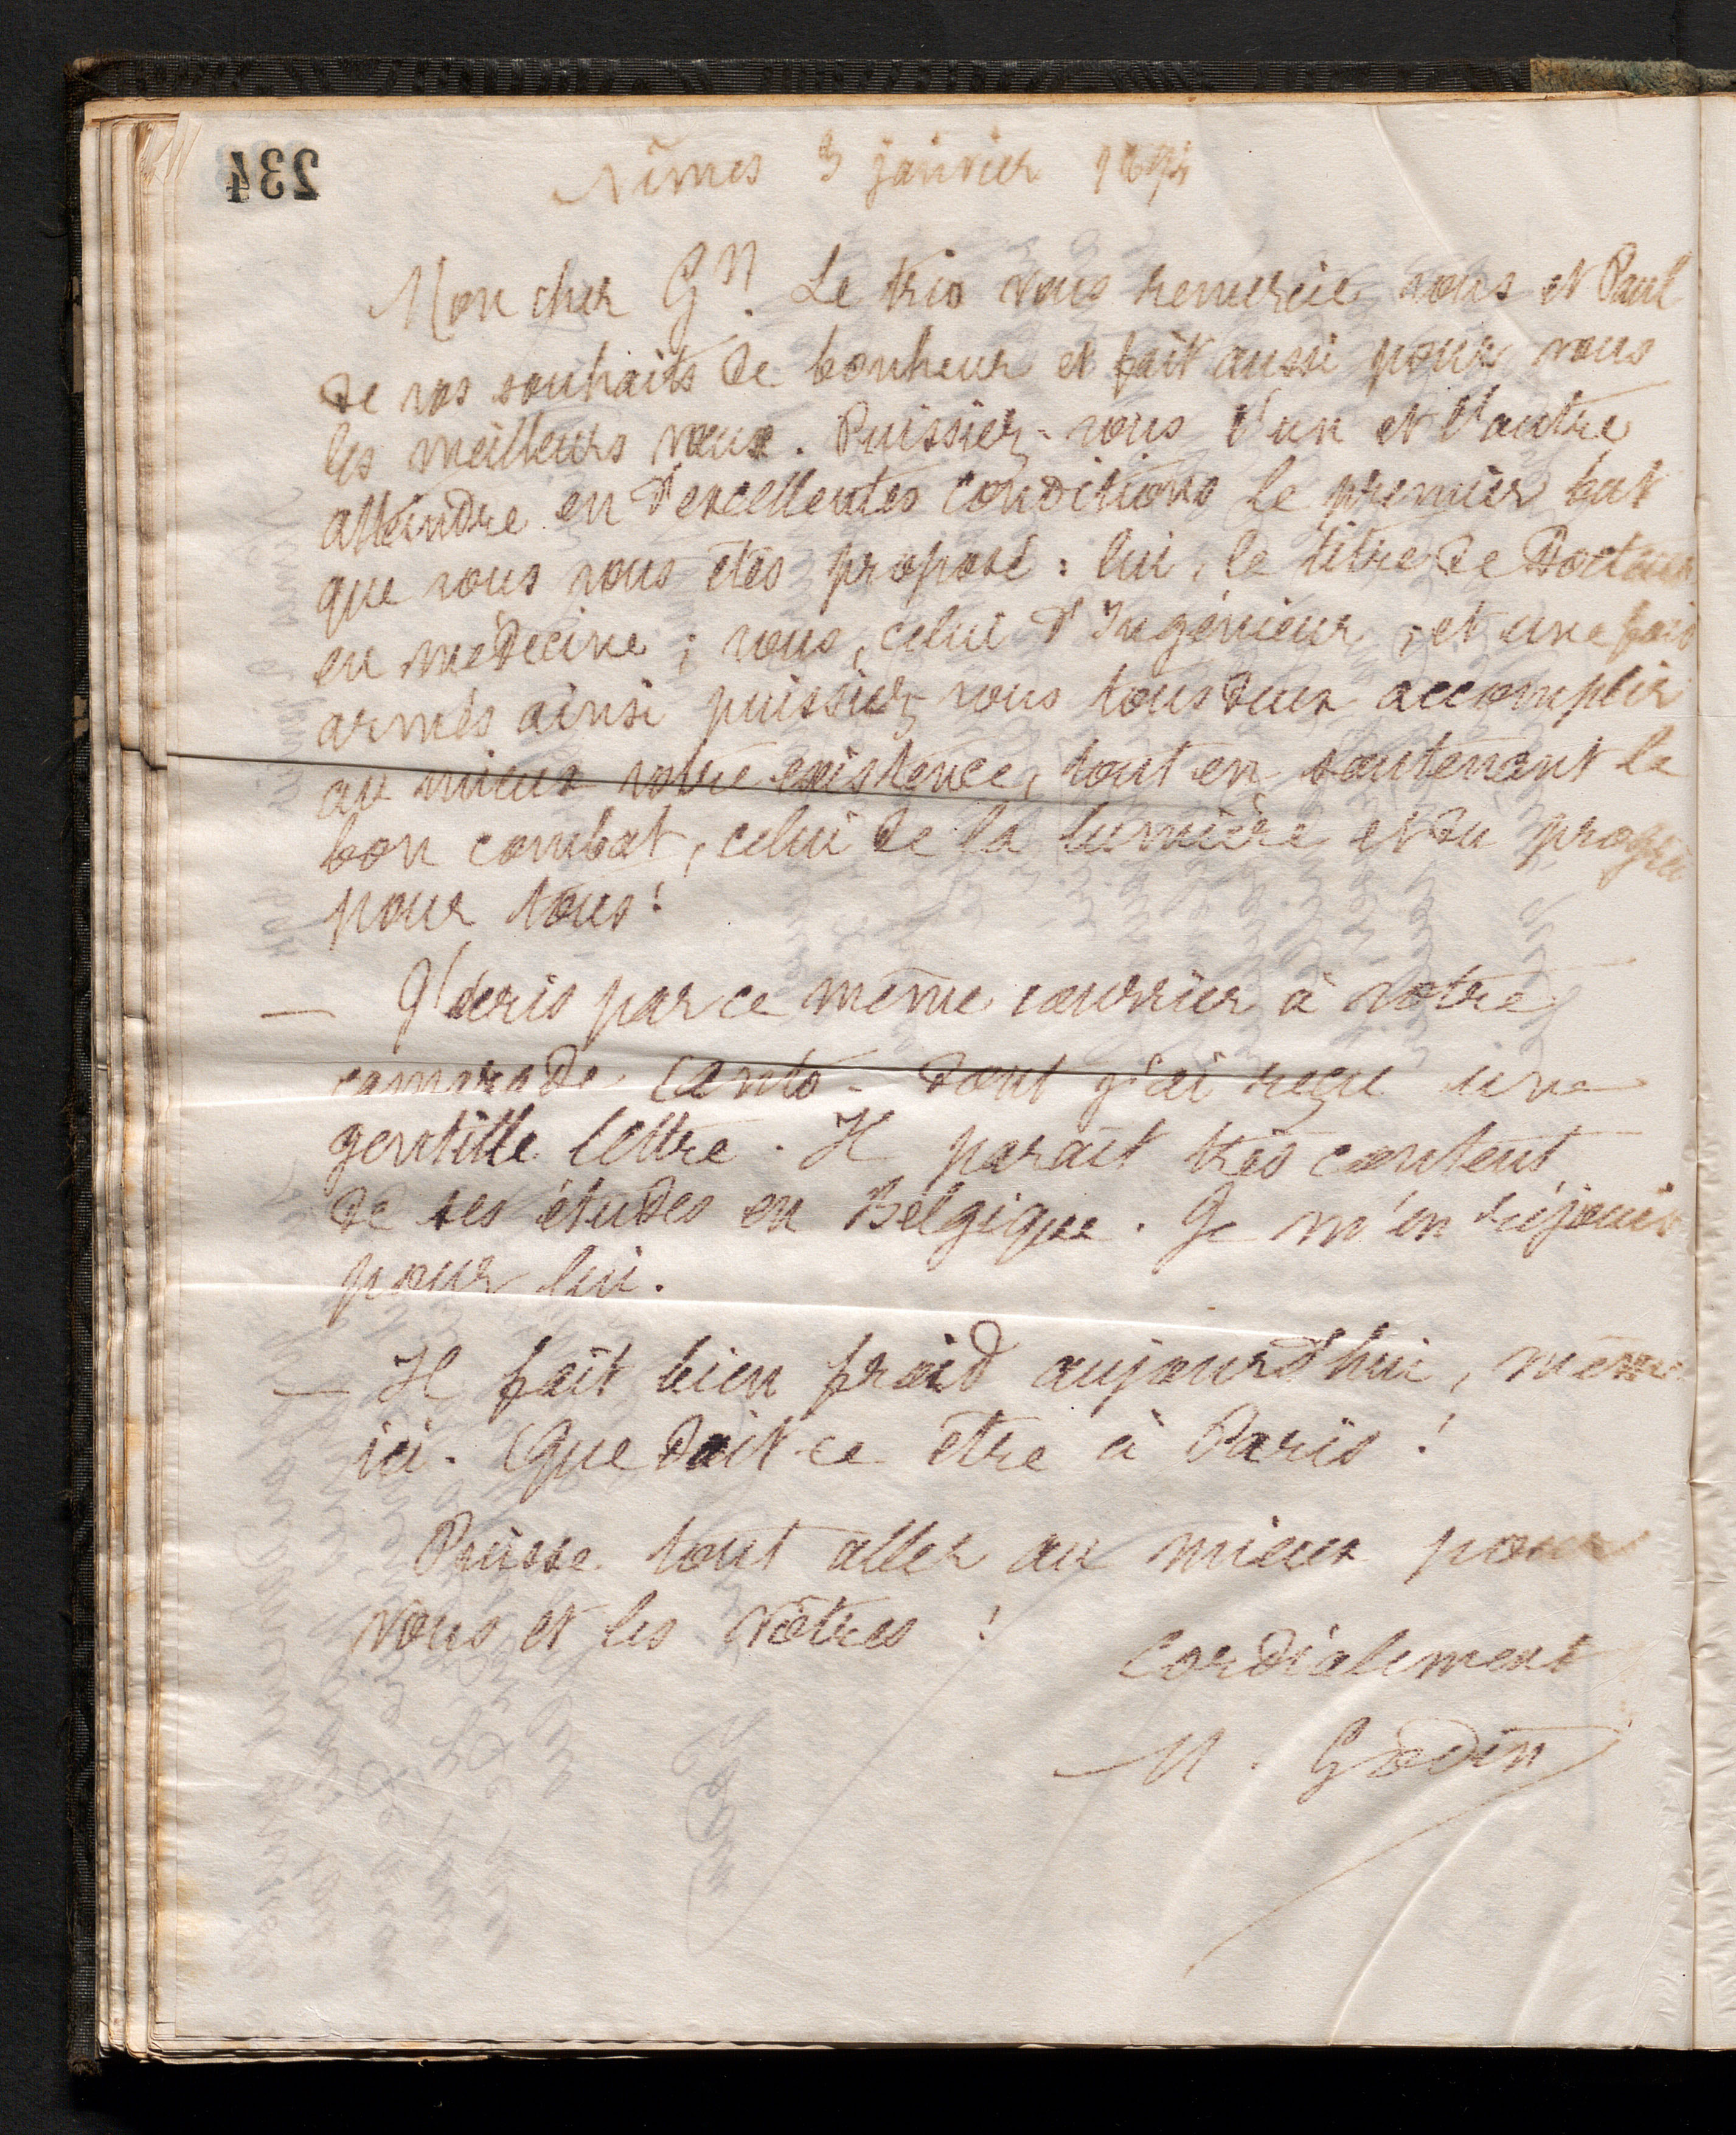 234
Nîmes 3 janvier 1894
Mon cher Gn. Le trio vous remercie vous et Paul
de vos souhaits de bonheur et fait aussi pour vous
les meilleurs vœux. Puissiez-vous l'un et l'autre
atteindre en d'excellentes conditions le premier but
que vous vous êtes proposé : lui, le titre de Docteur
en médecine ; vous, celui d'Ingénieur, et une fois
armés ainsi puissiez-vous tous deux accomplir
au mieux votre existence, tout en soutenant le
bon combat, celui de la lumière et du progrès
pour tous !
— J'écris par ce même courrier à votre
camarade Canto - dont j'ai reçu une
gentille lettre. Il paraît très content
de ses études en Belgique. Je m'en réjouis
pour lui.
— Il fait bien froid aujourd'hui, même
ici. Que doit-ce être à Paris !
Puisse tout aller au mieux pour
vous et les vôtres !
Cordialement
M. Godin